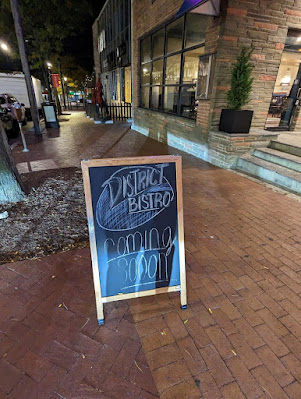 DISTRICT
BISTRO
Coming
Soon